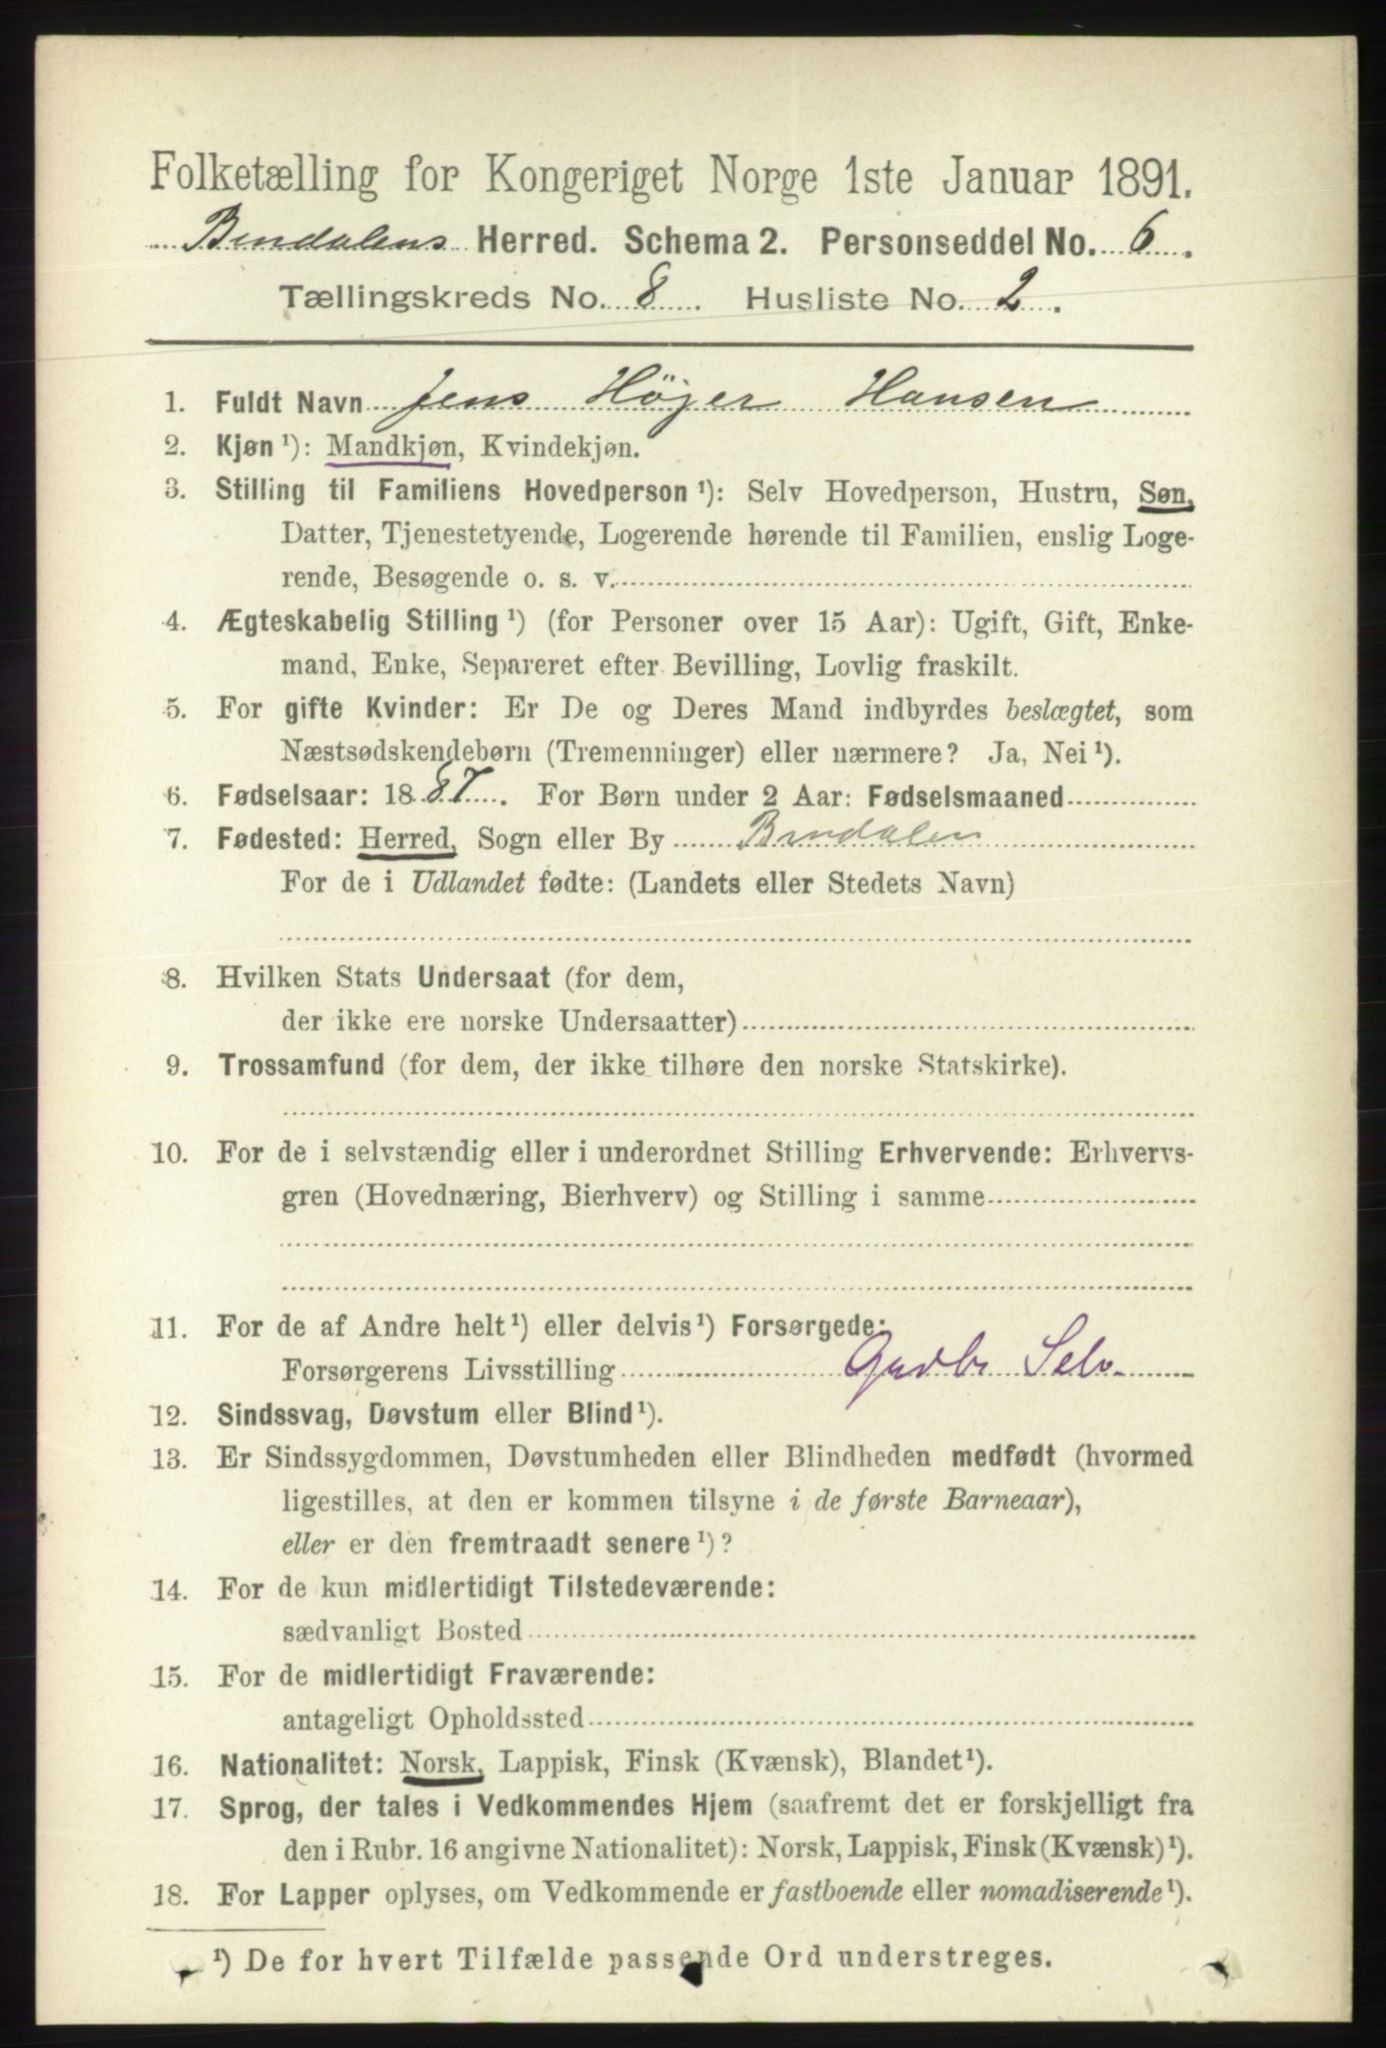 Folketælling for Kongeriget Norge 1ste Januar 1891.
Bindalens Herred. Schema 2. Personseddel No. 6.
Tællingskreds No. 8. Husliste No. 2.
1. Fuldt Navn Jens Höjer Hansen
2. Kjøn ¹): Mandkjøn, Kvindekjøn.
3. Stilling til Familiens Hovedperson ¹): Selv Hovedperson, Hustru, Søn,
Datter, Tjenestetyende, Logerende hørende til Familien, enslig Loge-
rende, Besøgende o. s. v.
4. Ægteskabelig Stilling ¹) (for Personer over 15 Aar): Ugift, Gift, Enke-
mand, Enke, Separeret efter Bevilling, Lovlig fraskilt.
5. For gifte Kvinder: Er De og Deres Mand indbyrdes beslægtet, som
Næstsødskendebørn (Tremenninger) eller nærmere? Ja, Nei ¹).
6. Fødselsaar: 1887. For Børn under 2 Aar: Fødselsmaaned
7. Fødested: Herred, Sogn eller By Bindalen
For de i Udlandet fødte: (Landets eller Stedets Navn)
8. Hvilken Stats Undersaat (for dem,
der ikke ere norske Undersaatter)
9. Trossamfund (for dem, der ikke tilhøre den norske Statskirke).
10. For de i selvstændig eller i underordnet Stilling Erhvervende: Erhvervs-
gren (Hovednæring, Bierhverv) og Stilling i samme
11. For de af Andre helt ¹) eller delvis ¹) Forsørgede:
Forsørgerens Livsstilling Gadbr Selv
12. Sindssvag, Døvstum eller Blind ¹).
13. Er Sindssygdommen, Døvstumheden eller Blindheden medfødt (hvormed
ligestilles, at den er kommen tilsyne i de første Barneaar),
eller er den fremtraadt senere ¹)?
14. For de kun midlertidigt Tilstedeværende:
sædvanligt Bosted
15. For de midlertidigt Fraværende:
antageligt Opholdssted
16. Nationalitet: Norsk, Lappisk, Finsk (Kvænsk), Blandet ¹).
17. Sprog, der tales i Vedkommendes Hjem (saafremt det er forskjelligt fra
den i Rubr. 16 angivne Nationalitet): Norsk, Lappisk, Finsk (Kvænsk) ¹).
18. For Lapper oplyses, om Vedkommende er fastboende eller nomadiserende ¹).
¹) De for hvert Tilfælde passende Ord understreges.